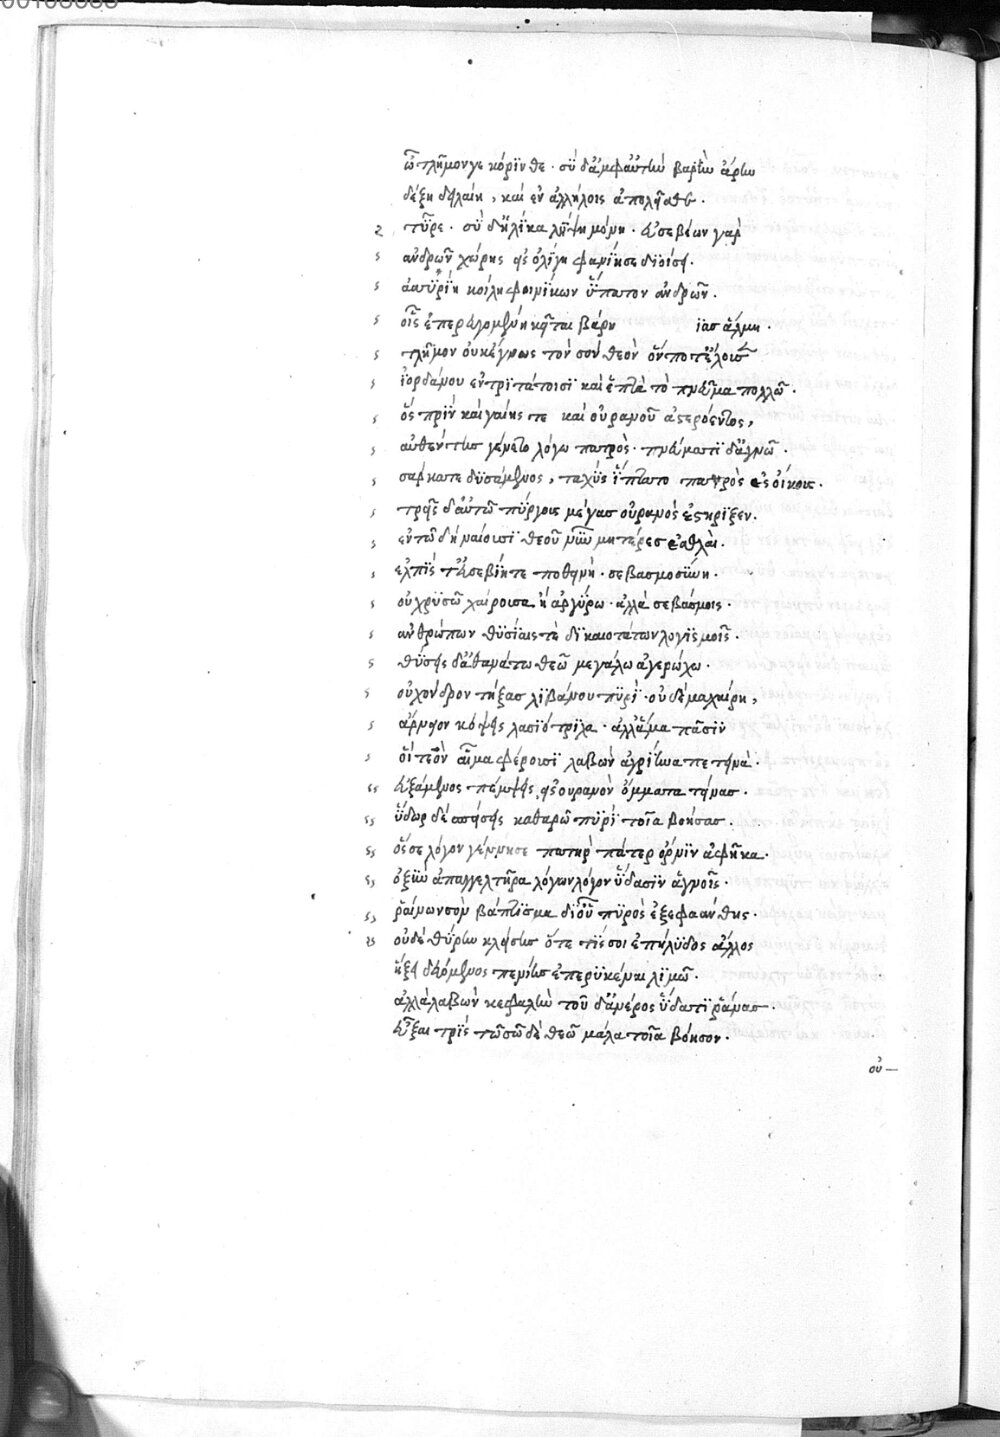 ὦ τλῆμον γε κόρϊνθε · σὺ δ' ἀμφ' αὐτὴν βαρὺν ἄρην
δέξῃ δηλαίη, καὶ ἐν ἀλλήλοις ἀπολεῖσθε ·
τῦρε · σὺ δ' ἡλίκα λήψῃ μόνη · εὐσεβέων γὰρ
ἀνδρῶν χώρης εἰς ὀλίγη
κοίλη φοινίκων ὕπατον ἀνδρῶν ·
οἷς ἐπερευγομένη κεῖται βαρη ϊασ ἅλμη ·
τλῆμον οὐκ ἔγνως τὸν σὸν θεὸν ὅν ποτ' ἔλουσ
ϊορδάνου ἐν τριτάτοισι καὶ ἔπτα τὸ πνεῦμα πολλῶ ·
ὃς πρϊν καὶ γαίης τε καὶ οὐρανοῦ ἀστερόεντος,
αὐθέντης γένετο λόγω πατρὸς · πνεύματϊ δ' ἁγνῶ ·
σάρκα τε δυσάμενος, ταχὺς ἵπτατο πατρὸς ἐς οἴκους ·
τρεῖς δ' αὐτῶ πύργους μέγασ οὐρανὸς ἐστήρϊξεν ·
ἐν τῶ δὴ ναίουσϊ θεοῦ νῦν μητέρεσ ἐσθλαὶ ·
ἐλπϊς τ' εὐσεβίη τε ποθεινὴ · σεβασμοσύνη ·
οὐ χρυσῶ χαίρουσα ἢ ἀργύρω · ἀλλὰ σεβάσμοις ·
ἀνθρώπων θυσίαις τὲ δϊκαιοτάτων λογϊσμοῖς ·
θύσης δ' ἀθανάτω θεῶ μεγάλω ἀγερώχω ·
οὐ χόνδρον τήξασ λϊβάνου πυρὶ · οὐδὲ μαχαίρη,
ἀρνειὸν κόψης λασιότριχα · ἀλλ' ἅμα πᾶσϊν
οἳ τεὸν αἷμα φέρουσϊ λαβὼν ἀγρίηνα πετηνὰ ·
εὐξάμενος πέμψης εἰς οὐρανὸν ὄμματα τείνασ ·
ὕδωρ δὲ σπείσης καθαρῶ πυρὶ τοῖα βοήσασ ·
ὥς σε λόγον γέννησε πατηρ πάτερ ὄρνϊν ἀφῆκα ·
ὀξὺν ἀπαγγελτῆρα λόγων λόγον ὕδασϊν ἁγνοῖς ·
ῥαίνων σὸν βάπτϊσμα δι' οὗ πυρὸς ἐξεφαάνθης ·
οὐδὲ θύρην κλείσεισ ὅτε τίς σοι ἐπήλυδος ἄλλος
ἥξει δεόμενος πενίησ ἐπερυκέμεν λϊμῶ ·
ἀλλὰ λαβὼν κεφαλὴν τοῦ δ' ἀνέρος ὕδατϊ ῥάνασ ·
εὖξαι τρὶς τῶ σῶ δὲ θεῶ μάλα τοῖα βόησον ·
οὐ—